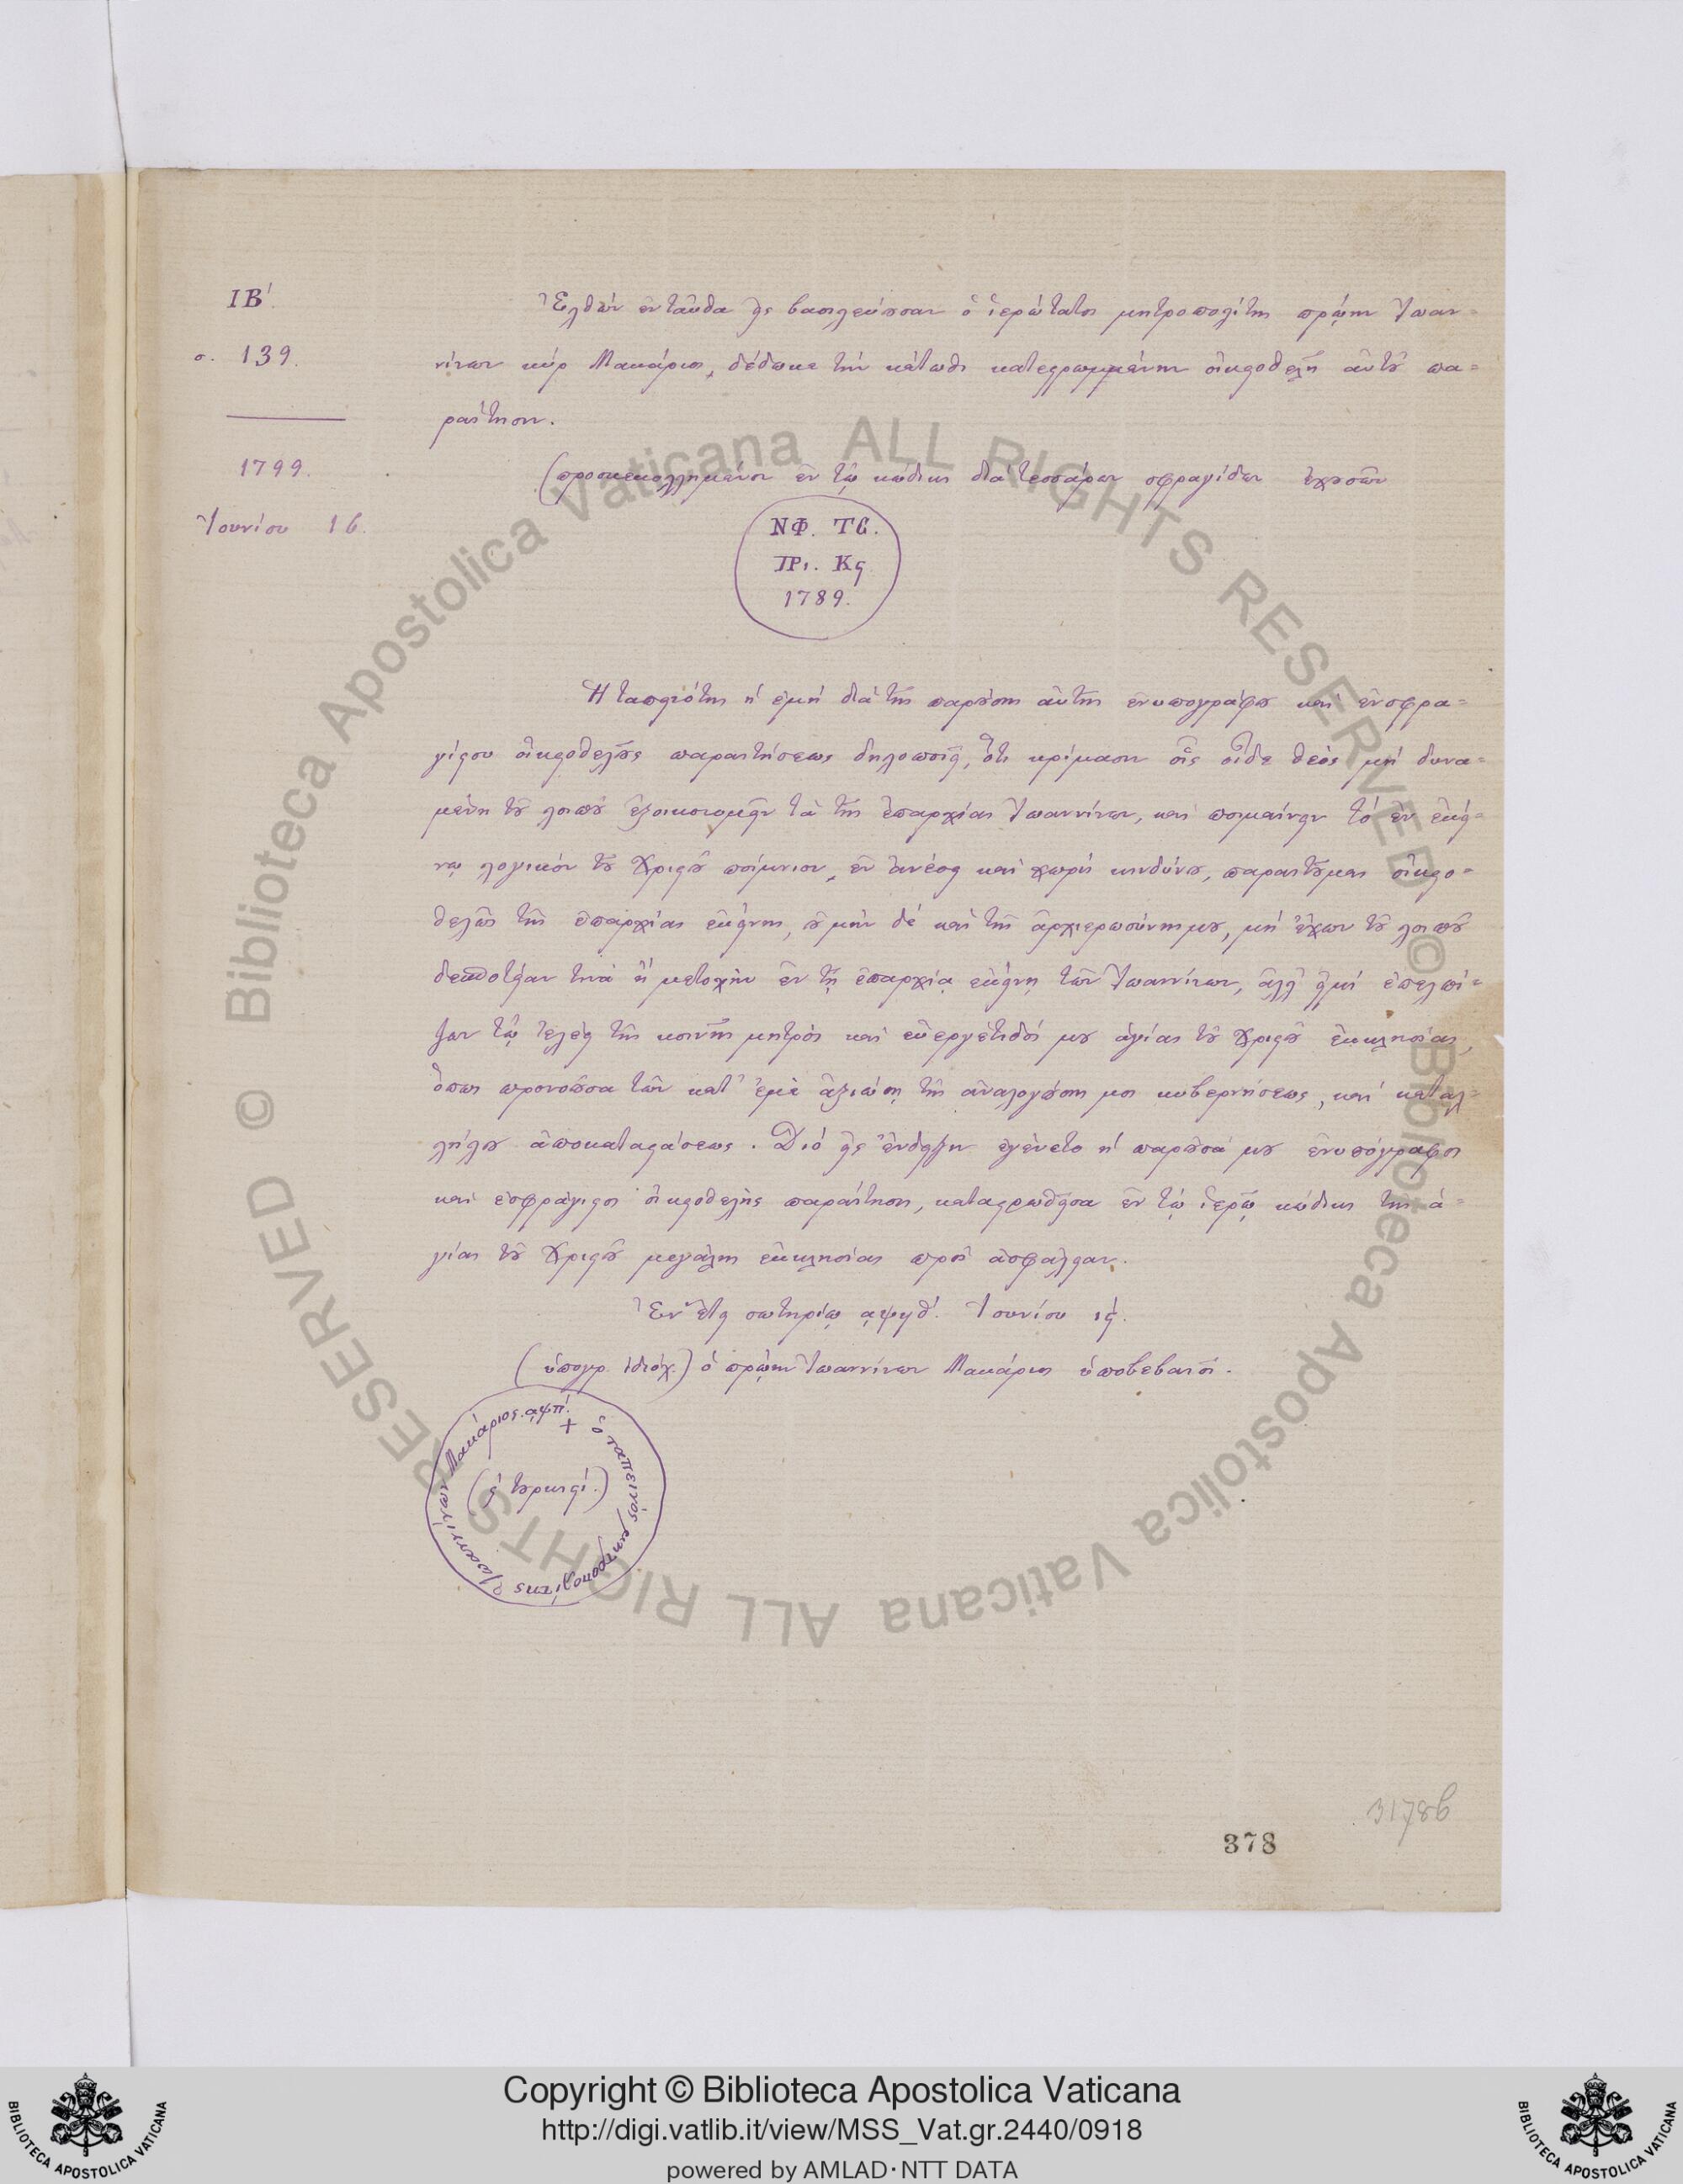 ΙΒ΄.
σ. 139.
1799.
Ἰουνίου 16.
Ἐλθὼν ἐνταῦθα εἰς βασιλεύουσαν ὁ ἱερώτατος μητροπολίτης πρώην Ἰωαν=
νίνων κὺρ Μακάριος, δέδωκε τὴν κάτωθι κατεστρωμμένην οἰκειοθελῆ αὐτοῦ πα=
ραίτησιν.
(προσκεκολλημένον ἐν τῷ κώδικι διὰ τεσσάρων σφραγίδων ἐχουσῶν
ΝΦ. Τϐ.
ΠΡι. Κς
1789.
Ἡ ταπεινότης ἡ ἐμὴ διὰ τῆς παρούσης αὐτῆς ἐνυπογράφου καὶ ἐνσφρα=
γίστου οἰκειοθελοῦς παραιτήσεως δηλοποιεῖ, ὅτι κρίμασιν οἷς οἶδε θεὸς μὴ δυνα=
μένη τοῦ λοιποῦ ἐξοικονομεῖν τὰ τῆς ἐπαρχίας Ἰωαννίνων, καὶ ποιμαίνειν τὸ ἐν ἐκεί=
νῳ λογικὸν τοῦ Χριστοῦ ποίμνιον, ἐν ἀνέσει καὶ χωρὶς κινδύνου, παραιτοῦμαι οἰκειο=
θελῶς τῆς ἐπαρχίας ἐκείνης, οὐ μὴν δὲ καὶ τῆς ἀρχιερωσύνης μου, μὴ ἔχων τοῦ λοιποῦ
δεσποτείαν τινὰ ἢ μετοχὴν ἐν τῇ ἐπαρχίᾳ ἐκείνῃ τῶν Ἰωαννίνων, ἀλλ᾽ εἰμὶ ἐπελπί=
ζων τῷ ἐλέει τῆς κοινῆς μητρὸς καὶ εὐεργέτιδός μου ἁγίας τοῦ Χριστοῦ ἐκκλησίας,
ὅπως προνοοῦσα τῶν κατ᾽ ἐμὲ ἀξιώσῃ τῆς ἀναλογούσης μοι κυβερνήσεως, καὶ καταλ=
λήλου ἀποκαταστάσεως. Διὸ εἰς ἔνδειξιν ἐγένετο ἡ παροῦσά μου ἐνυπόγραφος
καὶ ἐσφράγιστος οἰκειοθελὴς παραίτησις, καταστρωθεῖσα ἐν τῷ ἱερῷ κώδικι τῆς ἁ=
γίας τοῦ Χριστοῦ μεγάλης ἐκκλησίας πρὸς ἀσφάλειαν.
Ἐν ἔτει σωτηρίῳ ͵αψϟθ΄. Ἰουνίου ιϛ΄.
(ὑπογρ. ἰδιόχ.) ὁ πρώην Ἰωαννίνων Μακάριος ὑποβεβαιοῖ.
+ ὁ ταπεινὸς μητροπολίτης Ἰωαννίνων Μακάριος. ͵αψπ΄.
(ἡ τουρκιστί.)
378
31786
© Biblioteca Apostolica Vaticana ALL RIGHTS RESERVED
© Biblioteca Apostolica Vaticana ALL RIGHTS RESERVED
Copyright © Biblioteca Apostolica Vaticana
http://digi.vatlib.it/view/MSS_Vat.gr.2440/0918
powered by AMLAD·NTT DATA
BIBLIOTECA APOSTOLICA VATICANA
BIBLIOTECA APOSTOLICA VATICANA